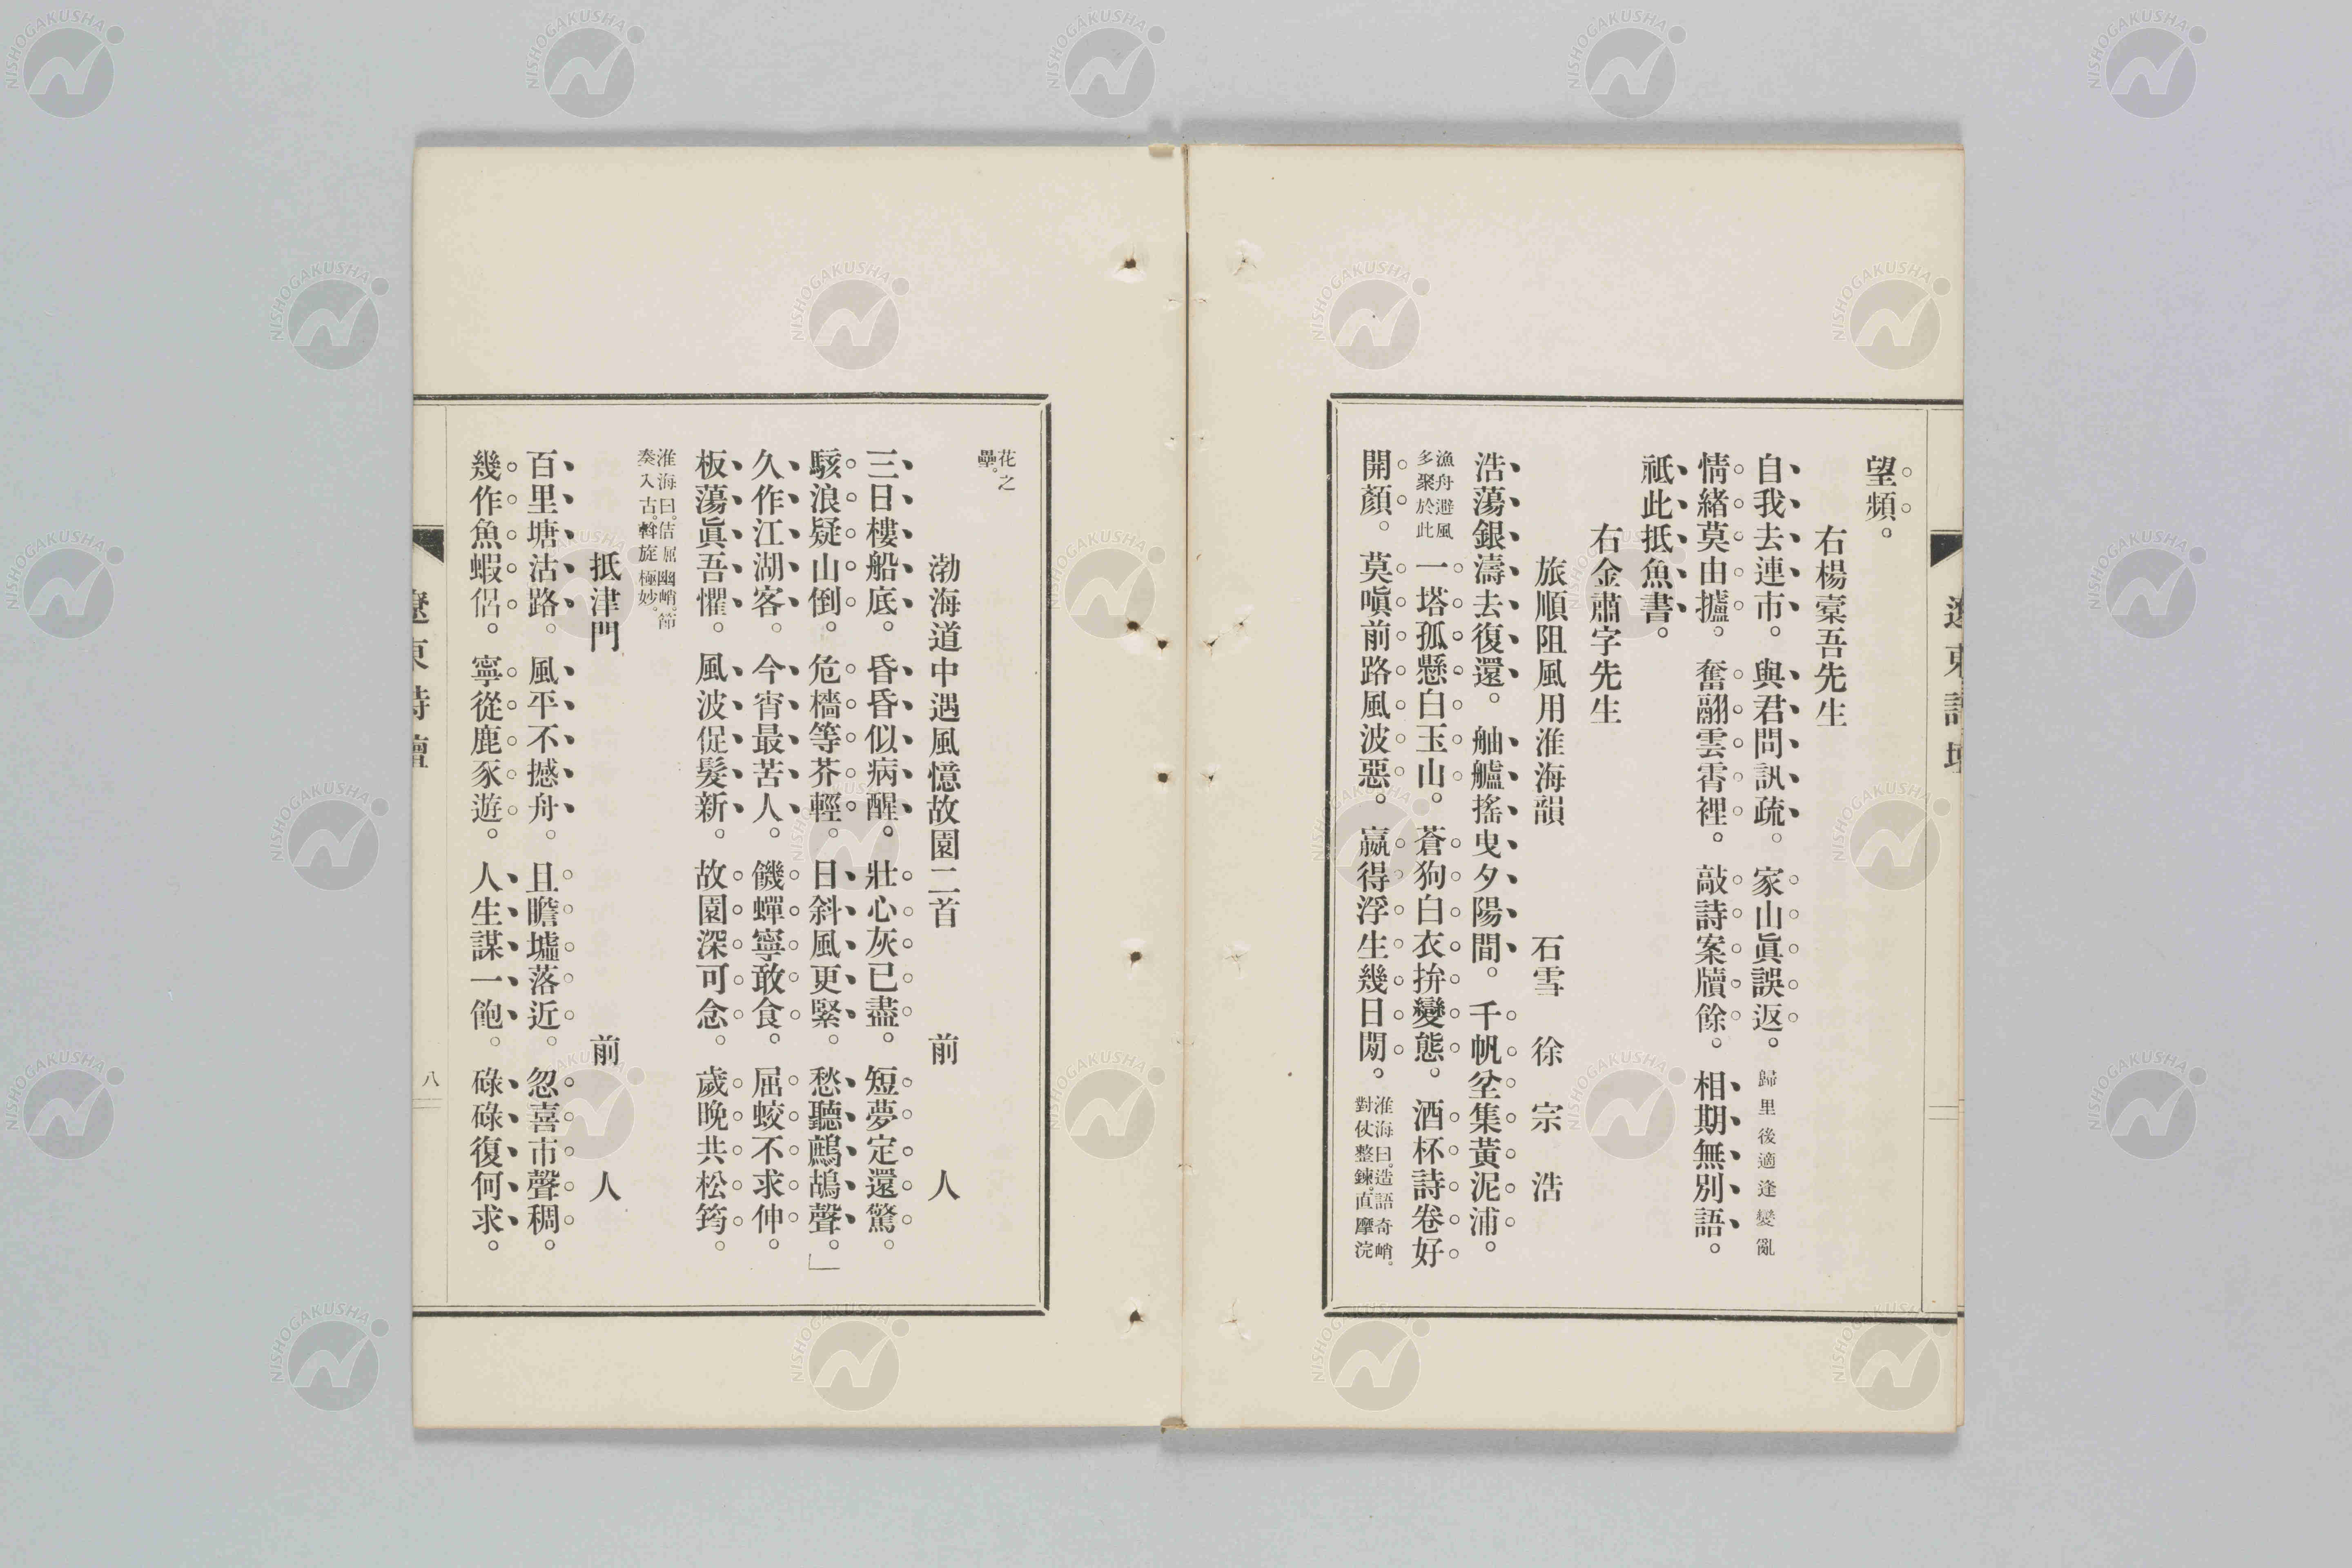 望頻。
右楊槖吾先生
自我去連市。與君問訊疏。家山眞誤返。歸里後適逢變亂
情緒莫由攄。奮翮雲霄裡。敲詩案牘餘。相期無別語。
祇此抵魚書。
右金肅字先生
旅順阻風用淮海韻　石雪　徐宗浩
浩蕩銀濤去復還。舳艫搖曳夕陽間。千帆坌集黃泥浦。
漁舟避風多聚於此一塔孤懸白玉山。蒼狗白衣拚變態。酒杯詩卷好
開顏。莫嗔前路風波惡。嬴得浮生幾日閒。淮海曰。造語奇峭。對仗整鍊。直摩浣
遼東詩壇
花之壘。
渤海道中遇風憶故園二首　前人
三日樓船底。昏昏似病醒。壯心灰已盡。短夢定還驚。
駭浪疑山倒。危檣等芥輕。日斜風更緊。愁聽鷓鴣聲。」
久作江湖客。今宵最苦人。饑蟬寧敢食。屈蛟不求伸。
板蕩眞吾懼。風波促髮新。故園深可念。歲晚共松筠。
淮海曰。佶屈幽峭。節奏入古。斡旋極妙。
抵津門　前人
百里塘沽路。風平不撼舟。且瞻墟落近。忽喜市聲稠。
幾作魚蝦侶。寧從鹿豕遊。人生謀一飽。碌碌復何求。
遼東詩壇
八
NISHOGAKUSHA